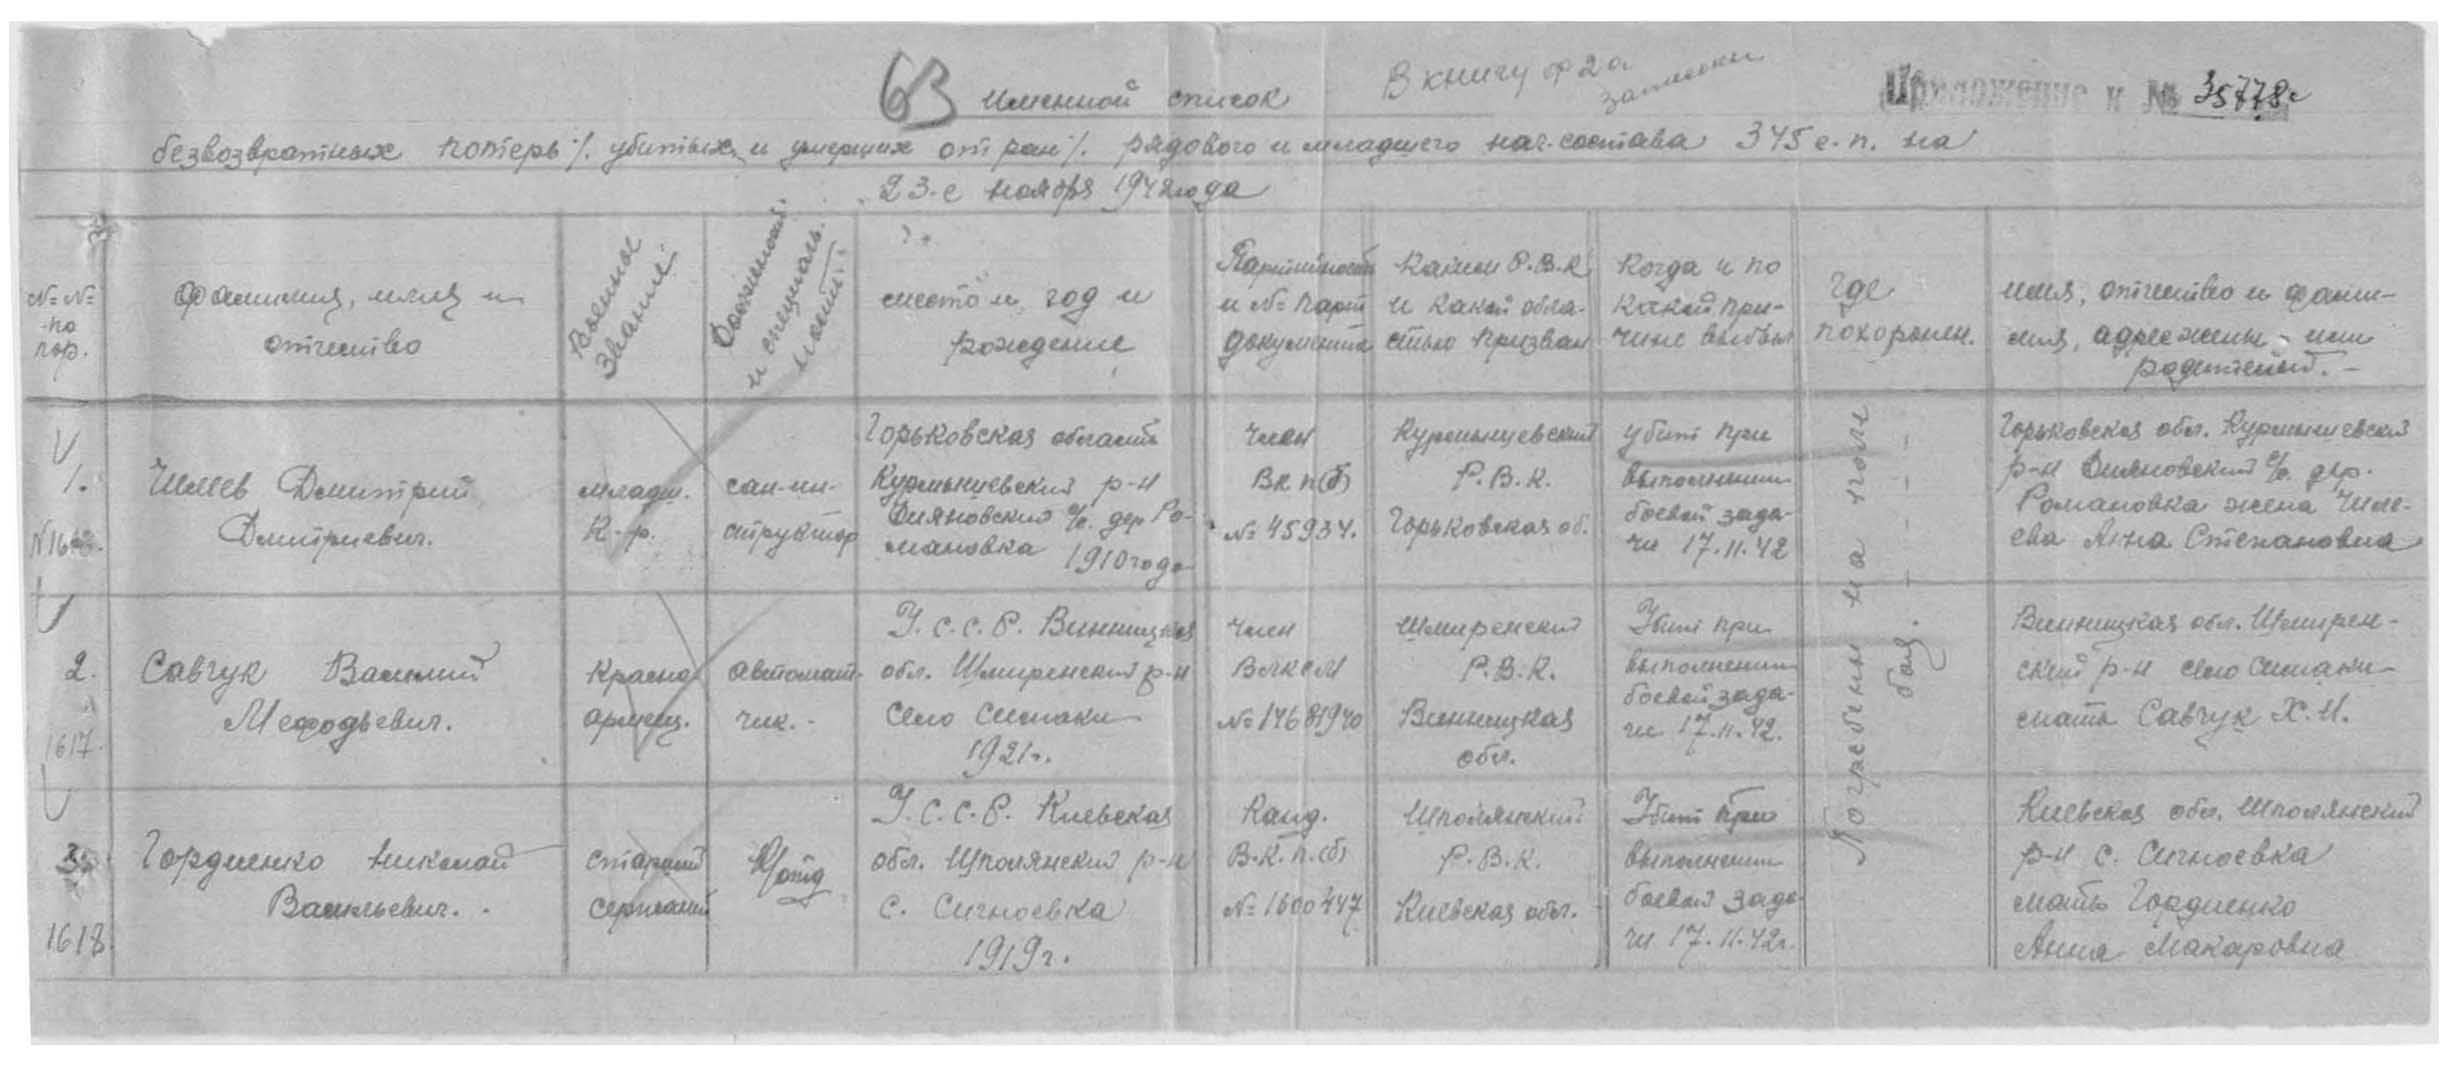 63 Именной список
В книгу ф 2а
Приложение к № 35778с
безвозвратных потерь /. убитых и умерших от ран /. рядового и младшего нач. состава 345 с.п. на
23-е ноября 1942 года
№ №
по
пор.
Фамилия, имя и
отчество
Военные
звание
Должность
и специаль-
ность
место и год и
рождение
Партийность
и № парт
документа
Каким Р.В.К
и какой обла-
стью призван
Когда и по
какой при-
чине выбыл
Где
похоронен.
имя, отчество и фами-
лия, адрес жены или
родителей. -
1.
Чилеев Дмитрий
Дмитриевич.
младш.
к-р.
сан-ин-
структор
Горьковская область
Курмышевский р-н
с/с. дер Ро-
мановка 1910 года
Член
ВКП(б)
№ 45934.
Курмышевский
Р.В.К.
Горьковская об.
убит при
выполнении
боевой зада-
чи 17.11.42
Погребены на поле
боя.
Горьковская обл. Курмышевский
р-н с/с. дер.
Романовка жена Чиле-
ева Анна Степановна
2.
1617
Савчук Василий
Мефодьевич.
красно-
армеец.
автомат-
чик. -
У.С.С.Р. Винницкая
обл. р-н
село Симаки
1921г.
Член
ВЛКСМ
№ 14681940
Р.В.К.
Винницкая
обл.
Убит при
выполнении
боевой зада-
чи 17.11.42.
Винницкая обл.
ский р-н село Симаки
мать Савчук Х.И.
3.
1618.
Гордиенко Николай
Васильевич.
старший
сержант
У.С.С.Р. Киевская
обл. Шполянский р-н
с. Сигноевка
1919г.
Канд.
В.К.п.(б)
№ 1600447
Шполянский
Р.В.К.
Киевская обл.
Убит при
выполнении
боевой зада
чи 17.11.42г.
Киевская обл. Шполянский
р-н с. Сигноевка
мать Гордиенко
Анна Макаровна